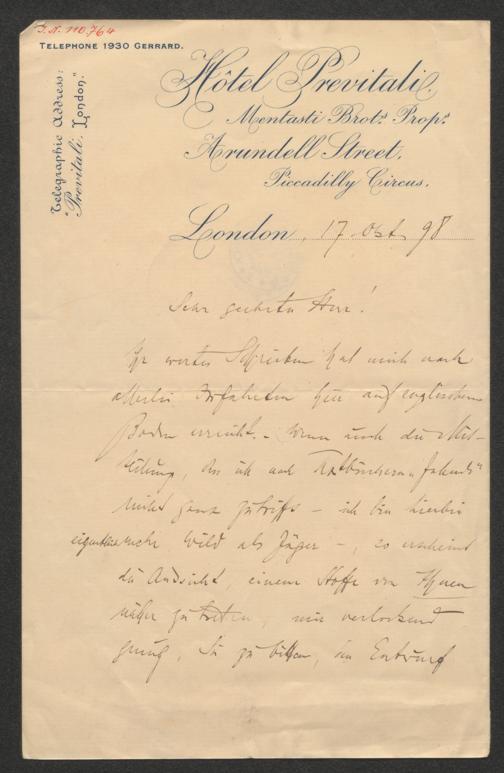 I.N. 110.764
TELEPHONE 1930 GERRARD.
Telegraphic Address:
"Previtali, London."
Hôtel Previtali,
Mentasti Brots. Props.
Arundell Street,
Piccadilly Circus.
London, 17. Okt. 98
Sehr geehrter Herr!
Ihr wertes Schreiben hat mich nach
allerlei Irrfahrten hier auf englischem
Boden erreicht. - Wenn auch die Mit-
theilung, daß ich nach Textbüchern "fahnde"
nicht ganz zutrifft - ich bin hierbei
eigentlich mehr Wild als Jäger -, so erscheint
die Aussicht, einem Stoffe von Ihnen
näher zu treten, mir verlockend
genug, Sie zu bitten, den Entwurf